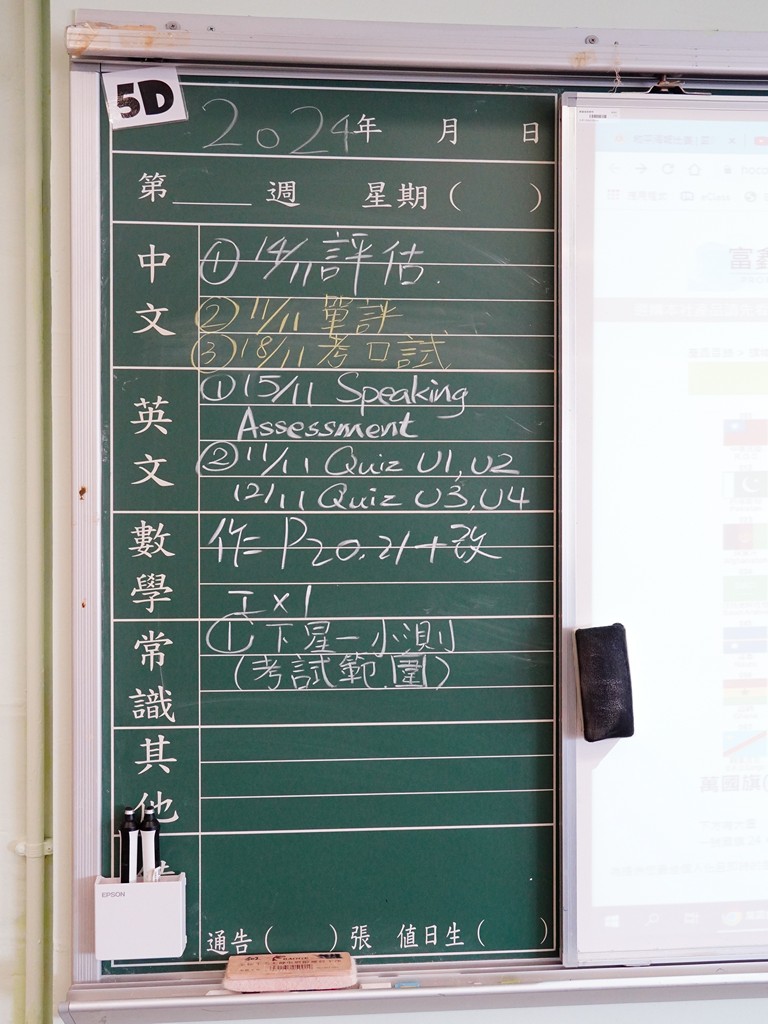 5D
2024年 月 日
第____週 星期( )
中文
① 14/11 評估.
② 11/11 單評
③ 18/11 考口試
英文
① 15/11 Speaking
Assessment
② 11/11 Quiz U1, U2
12/11 Quiz U3, U4
數學
作= P20.21+改
工×1
常識
① 下星一小測
(考試範圍)
其他
通告( )張 值日生( )
EPSON
富鑫
萬國旗(